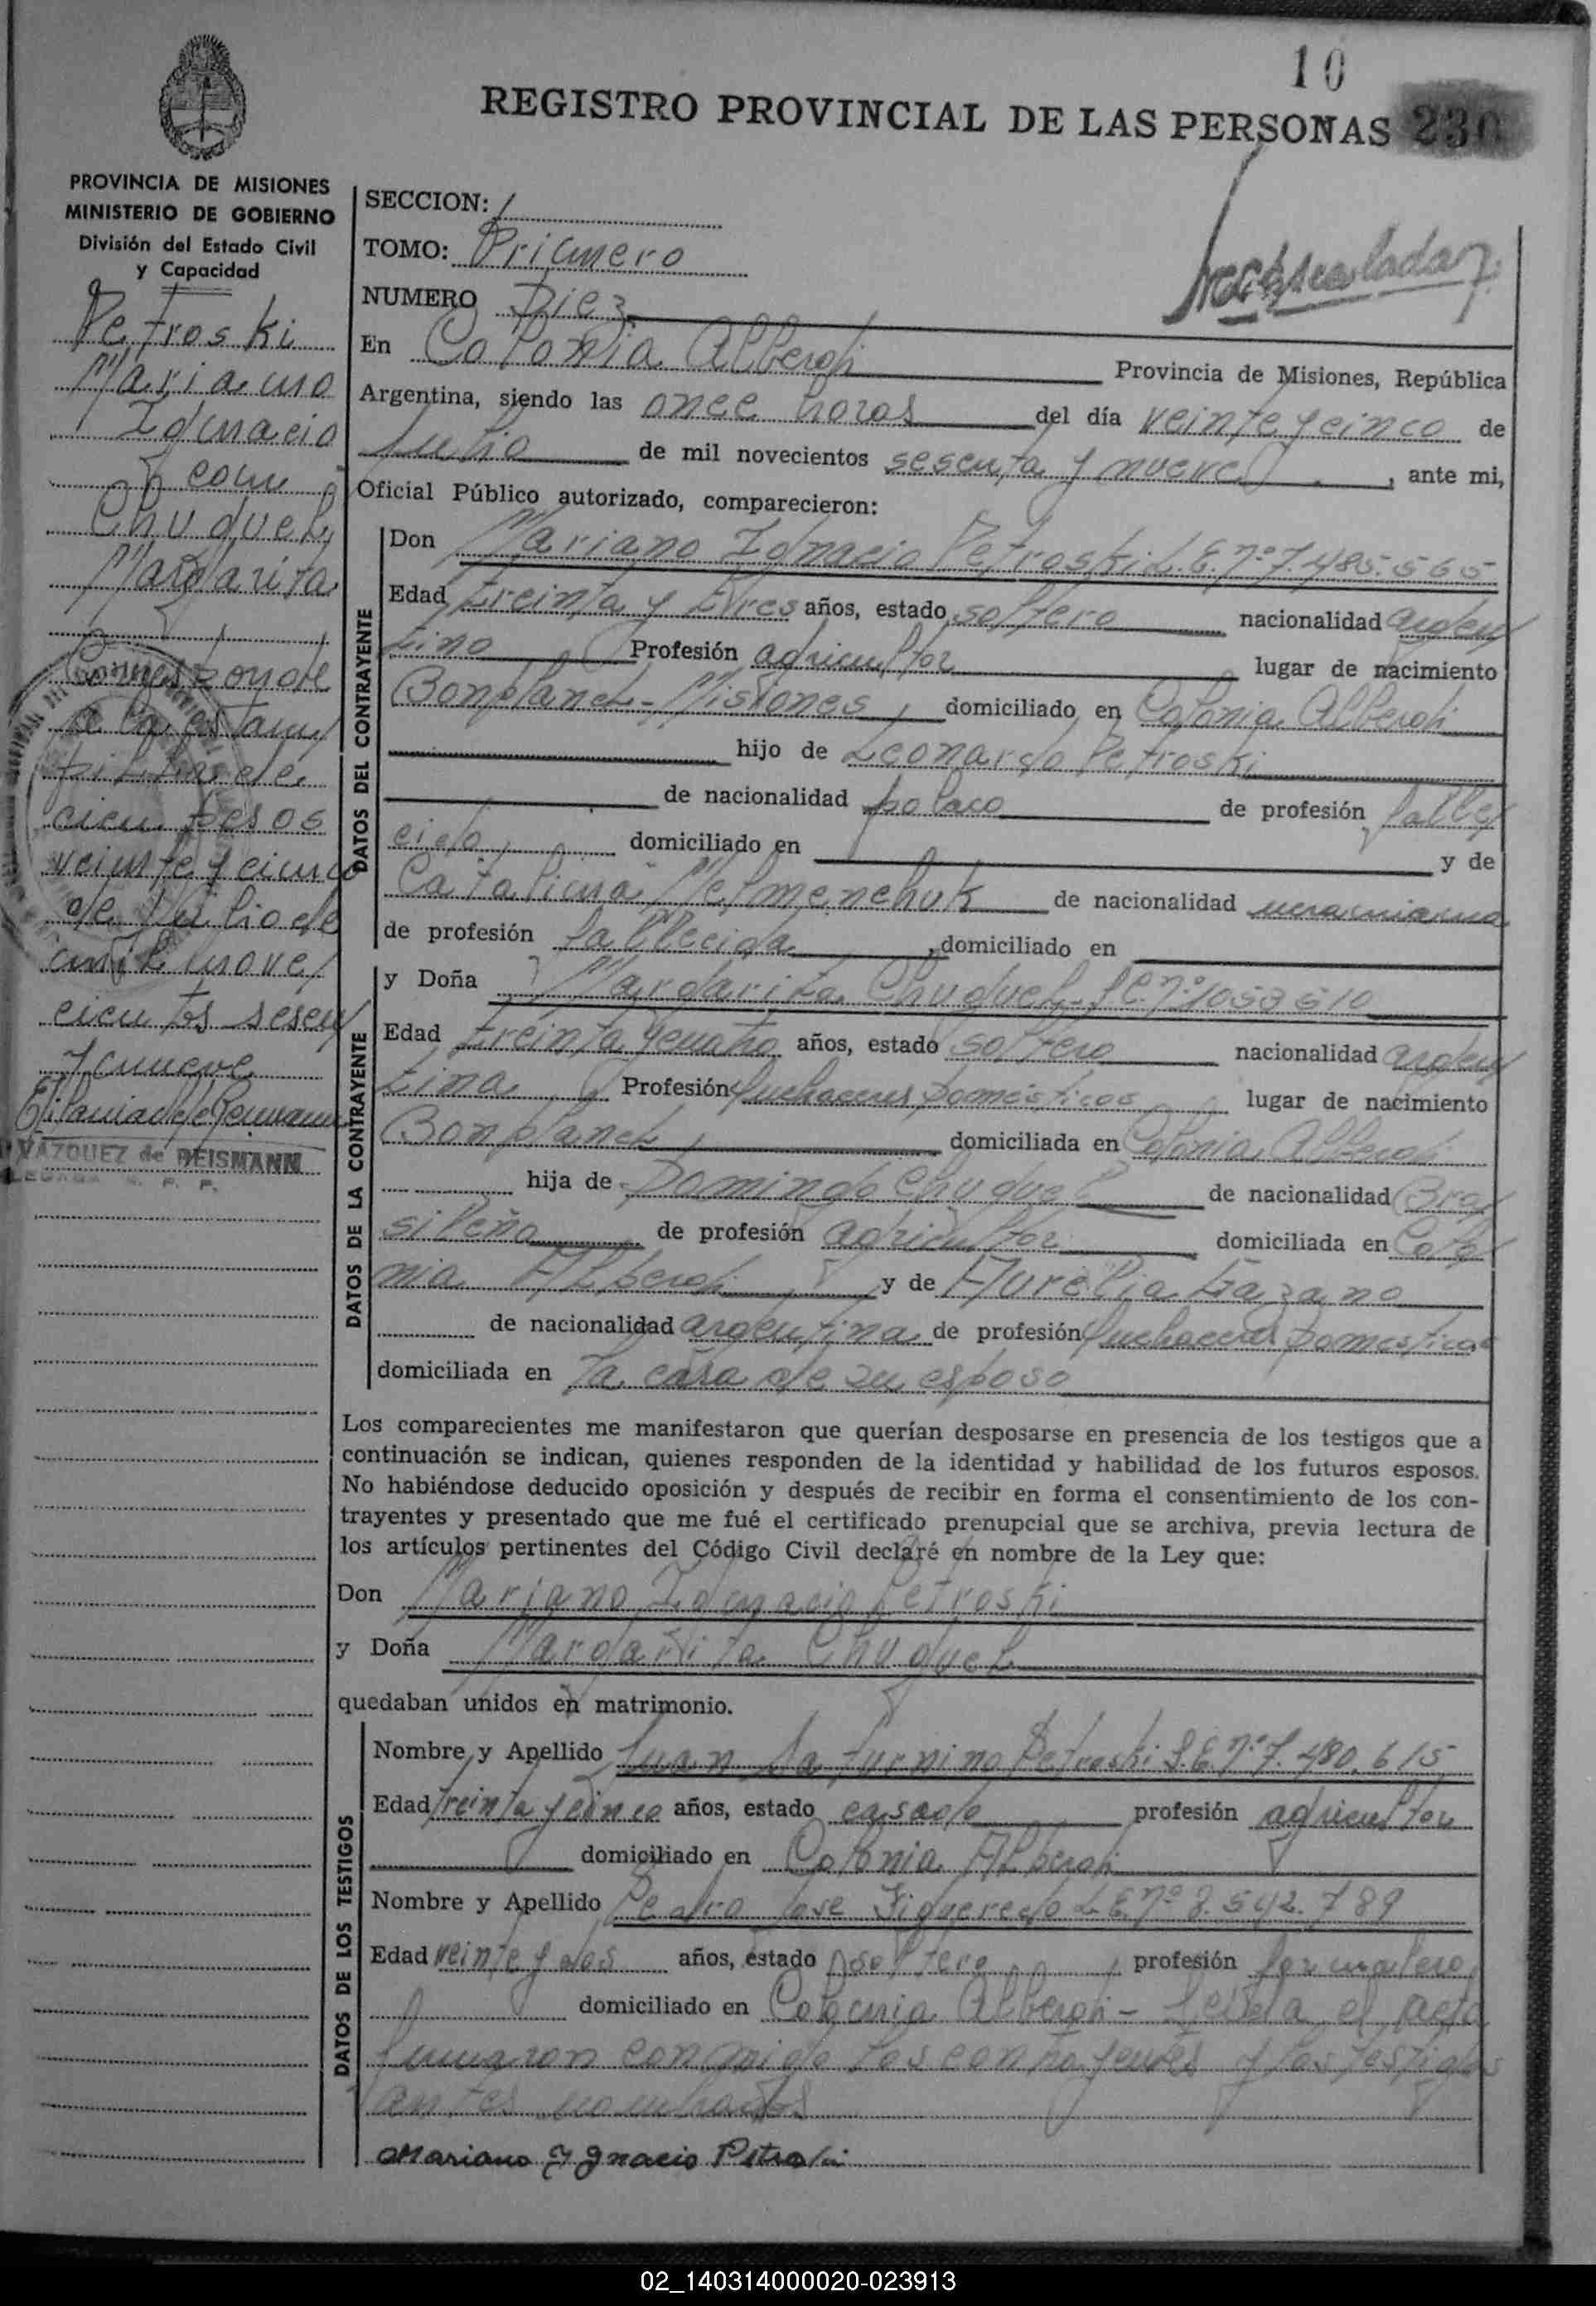 10
REGISTRO PROVINCIAL DE LAS PERSONAS 230
PROVINCIA DE MISIONES
MINISTERIO DE GOBIERNO
División del Estado Civil
y Capacidad
Petroski
Mariano
Ignacio
con
Chuquel
Margarita
Corresponde
a la estam
pilla de
cien pesos
veinte y cinco
de Julio de
mil nove
cientos sesen
y nueve
VAZQUEZ de REISMANN
SECCION: 1
TOMO: Primero
NUMERO Diez
En Colonia Alberdi Provincia de Misiones, República
Argentina, siendo las once horas del día veinte y cinco de
Julio de mil novecientos sesenta y nueve, ante mi,
Oficial Público autorizado, comparecieron:
DATOS DEL CONTRAYENTE
Don Mariano Ignacio Petroski L.E. nº 7.485.565
Edad treinta y tres años, estado soltero nacionalidad argen
tino Profesión agricultor lugar de nacimiento
Bonpland - Misiones, domiciliado en Colonia Alberdi
hijo de Leonardo Petroski
de nacionalidad polaco de profesión falle
cido, domiciliado en y de
Catalina Melmenchuk de nacionalidad ucraniana
de profesión fallecida, domiciliado en
DATOS DE LA CONTRAYENTE
y Doña Margarita Chuquel - L.C. nº 1053610
Edad treinta y cuatro años, estado soltera nacionalidad argen
tina Profesión quehaceres domesticos lugar de nacimiento
Bonpland, domiciliada en Colonia Alberdi
hija de Domingo Chuquel de nacionalidad Bra
sileña de profesión agricultor domiciliada en Colo
nia Alberdi y de Aurelia
de nacionalidad argentina de profesión quehaceres domesticos
domiciliada en la casa de su esposo
Los comparecientes me manifestaron que querían desposarse en presencia de los testigos que a
continuación se indican, quienes responden de la identidad y habilidad de los futuros esposos.
No habiéndose deducido oposición y después de recibir en forma el consentimiento de los con-
trayentes y presentado que me fué el certificado prenupcial que se archiva, previa lectura de
los artículos pertinentes del Código Civil declaré en nombre de la Ley que:
Don Mariano Ignacio Petroski
y Doña Margarita Chuquel
quedaban unidos en matrimonio.
DATOS DE LOS TESTIGOS
Nombre y Apellido Juan Saturnino Petroski L.E. nº 7.480.615
Edad treinta y cinco años, estado casado profesión agricultor
domiciliado en Colonia Alberdi
Nombre y Apellido Pedro Jose Figueredo L.E. nº 8.542.789
Edad veinte y dos años, estado soltero, profesión jornalero,
domiciliado en Colonia Alberdi - Leida el acta
firmaron conmigo los contrayentes y los testigos
antes nombrados
Mariano Ygnacio Petroski
02_140314000020-023913